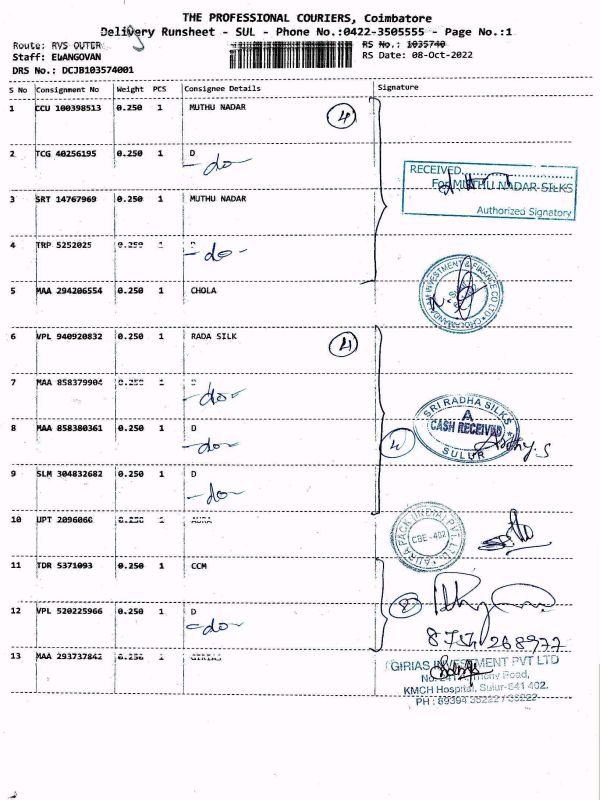 THE PROFESSIONAL COURIERS, Coimbatore
Delivery Runsheet - SUL - Phone No.:0422-3505555 - Page No.:1
Route: RVS OUTER
RS No.: 1035740
Staff: ELANGOVAN
RS Date: 08-Oct-2022
DRS No.: DCJB103574001
S No Consignment No Weight PCS Consignee Details Signature
1 CCU 100398513 0.250 1 MUTHU NADAR 4
2 TCG 40256195 0.250 1 D -do-
RECEIVED
For MUTHU NADAR SILKS
Authorized Signatory
3 SRT 14767969 0.250 1 MUTHU NADAR
4 TRP 5252025 0.250 1 D -do-
5 MAA 294206554 0.250 1 CHOLA
CHOLAMANDALAM INVESTMENT & FINANCE CO LTD
6 VPL 940920832 0.250 1 RADA SILK 4
7 MAA 858379904 0.250 1 D -do-
8 MAA 858380361 0.250 1 D -do-
SRI RADHA SILKS
CASH RECEIVED
SULUR
9 SLM 304832682 0.250 1 D -do-
10 UPT 2096066 0.250 1 AURA
AURA PACK (INDIA) PVT. LTD.
CBE - 402
11 TDR 5371093 0.250 1 CCM
12 VPL 520225966 0.250 1 D -do-
2
13 MAA 293737842 0.250 1 GIRIAS
GIRIAS INVESTMENT PVT LTD
Road,
KMCH Hospital, Sulur-641 402.
PH : 89394